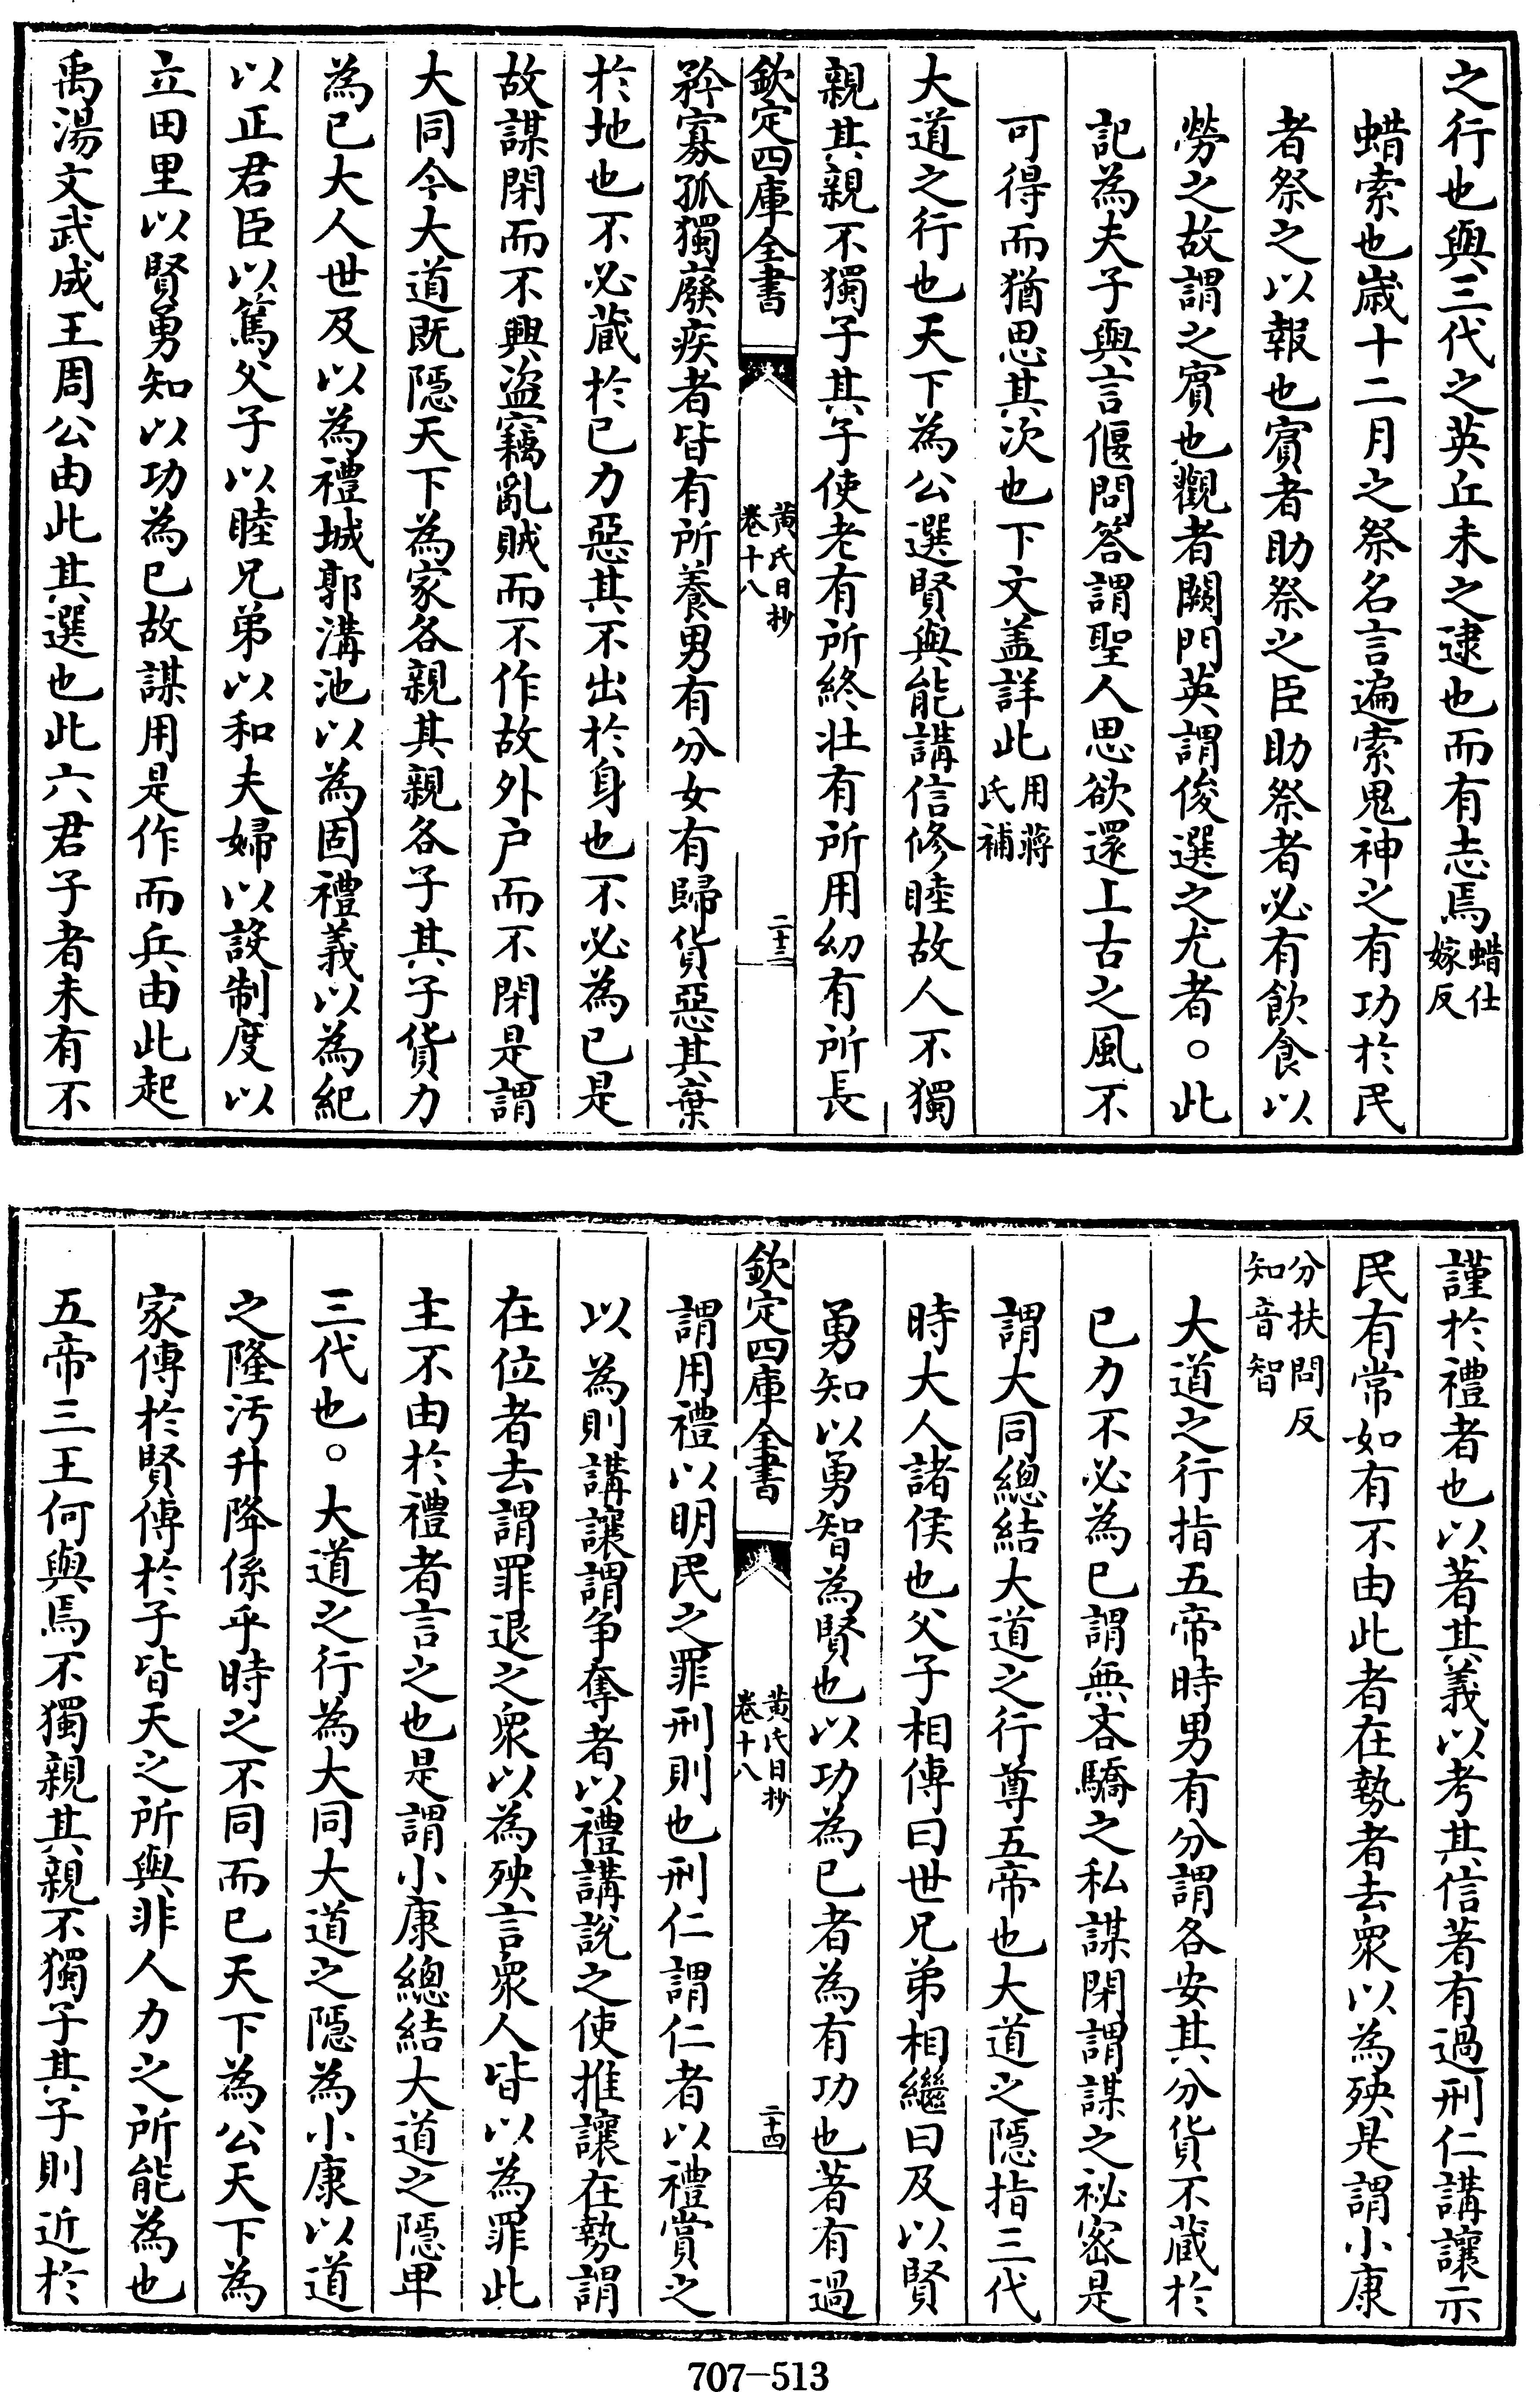 之行也與三代之英丘未之逮也而有志焉蜡仕嫁反
蜡索也歲十二月之祭名言遍索鬼神之有功於民
者祭之以報也賓者助祭之臣助祭者必有飲食以
勞之故謂之賓也觀者闕門英謂俊選之尤者○此
記為夫子與言偃問答謂聖人思欲還上古之風不
可得而猶思其次也下文盖詳此用蔣氏補
大道之行也天下為公選賢與能講信修睦故人不獨
親其親不獨子其子使老有所終壯有所用幼有所長
欽定四庫全書 黃氏日抄 卷十八 二十三
矜寡孤獨廢疾者皆有所養男有分女有歸貨惡其棄
於地也不必藏於已力惡其不出於身也不必為已是
故謀閉而不興盗竊亂賊而不作故外户而不閉是謂
大同今大道既隱天下為家各親其親各子其子貨力
為已大人世及以為禮城郭溝池以為固禮義以為紀
以正君臣以篤父子以睦兄弟以和夫婦以設制度以
立田里以賢勇知以功為已故謀用是作而兵由此起
禹湯文武成王周公由此其選也此六君子者未有不
謹於禮者也以著其義以考其信著有過刑仁講讓示
民有常如有不由此者在勢者去衆以為殃是謂小康
分扶問反知音智
大道之行指五帝時男有分謂各安其分貨不藏於
已力不必為已謂無吝驕之私謀閉謂謀之祕密是
謂大同總結大道之行尊五帝也大道之隱指三代
時大人諸侯也父子相傳曰世兄弟相繼曰及以賢
勇知以勇智為賢也以功為已者為有功也著有過
欽定四庫全書 黃氏日抄 卷十八 二十四
謂用禮以明民之罪刑則也刑仁謂仁者以禮賞之
以為則講讓謂争奪者以禮講說之使推讓在勢謂
在位者去謂罪退之衆以為殃言衆人皆以為罪此
主不由於禮者言之也是謂小康總結大道之隱卑
三代也○大道之行為大同大道之隱為小康以道
之隆汚升降係乎時之不同而已天下為公天下為
家傳於賢傳於子皆天之所與非人力之所能為也
五帝三王何與焉不獨親其親不獨子其子則近於
707-513